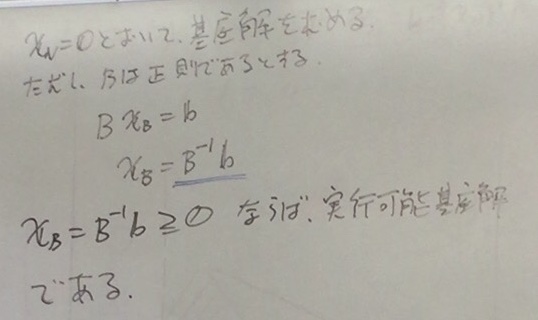 xN=0とおいて、基底解を求める。
ただし、Bは正則であるとする。
B xB = b
xB = B⁻¹b
xB = B⁻¹b ≥ 0 ならば、実行可能基底解
である。